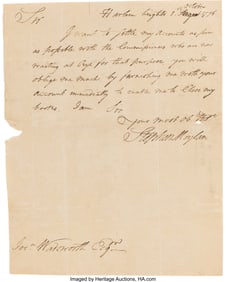 Sir
Harlem heights 1 October 1776
I want to settle my accounts as soon
as possible with the Commissioners who are now
waiting at for that purpose you will
oblige me much by furnishing me with your
account immediately to enable me to Close my
books. I am Sir
Your most ob
Stephen Moylan
Wadsworth Esqr
Imaged by Heritage Auctions, HA.com